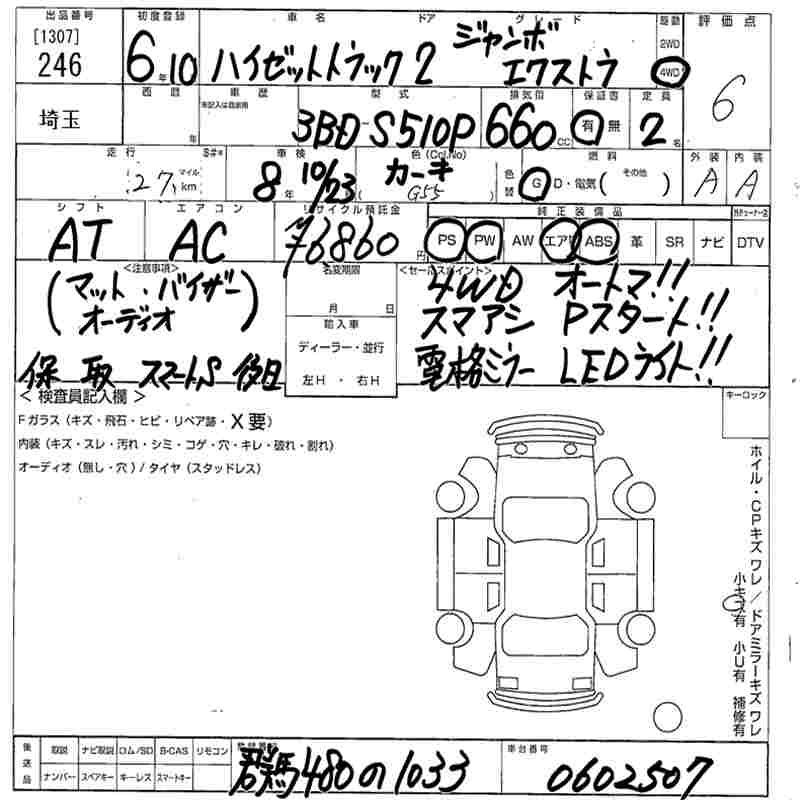 出品番号 初度登録 車名 ドア グレード 駆動 評価点
[1307]
246
6年10 ハイゼットトラック 2 ジャンボ エクストラ 2WD 4WD 6
西暦 車歴 型式 排気量 保証書 定員
埼玉 年 未記入は自家用 3BD-S510P 660cc 有・無 2名
走行 S#* 車検 色(Col,No) 燃料 外装 内装
27 マイル km 8年 10/23 カーキ G55 色替 G・D・電気( その他 ) A A
シフト エアコン リサイクル預託金 純正装備品
AT AC ¥6860円 PS PW AW エアB ABS 革 SR ナビ DTV
<注意事項> 名変期限 <セールスポイント>
(マット・バイザー 月 日 4WD オートマ!!
オーディオ) 輸入車 スマアシ Pスタート!!
ディーラー・並行
保 取 スマートS 後日 左H・右H 電格ミラー LEDライト!!
< 検査員記入欄 > キーロック
Fガラス(キズ・飛石・ヒビ・リペア跡・X要)
内装(キズ・スレ・汚れ・シミ・コゲ・穴・キレ・破れ・割れ)
オーディオ(無し・穴)/タイヤ(スタッドレス)
ホイル・CPキズ ワレ/ドアミラーキズ ワレ
小キズ有 小U有 補修有
後送品 取説 ナビ取説 ロム/SD B-CAS リモコン 車台番号
ナンバー スペアキー キーレス スマートキー 群馬480の1033 0602507